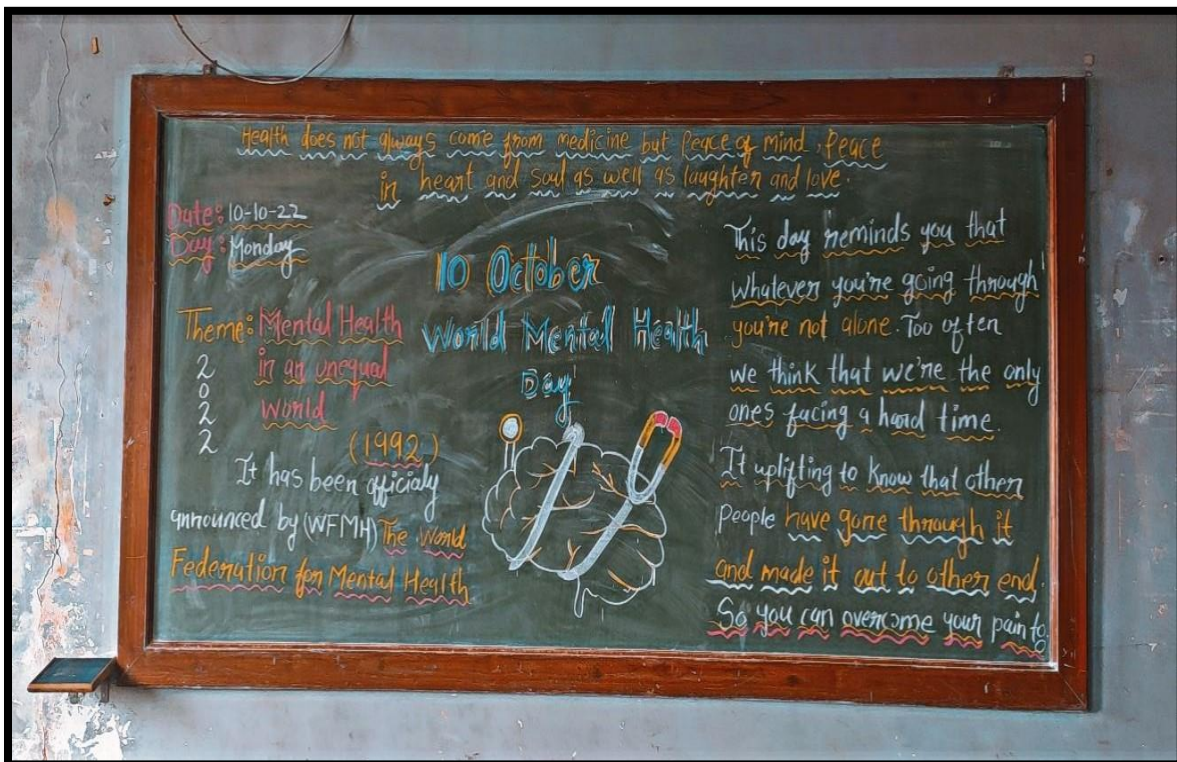 Health does not always come from medicine but Peace of mind, Peace
in heart and soul as well as laughter and love.
Date: 10-10-22
Day: Monday
Theme: Mental Health
in an unequal
world
2
0
2
2
(1992)
It has been officialy
announced by (WFMH) The World
Federation for Mental Health
10 October
World Mental Health
Day
This day reminds you that
whatever you're going through
you're not alone. Too often
we think that we're the only
ones facing a hard time.
It uplifting to know that other
people have gone through it
and made it out to other end.
So you can overcome your pain to.